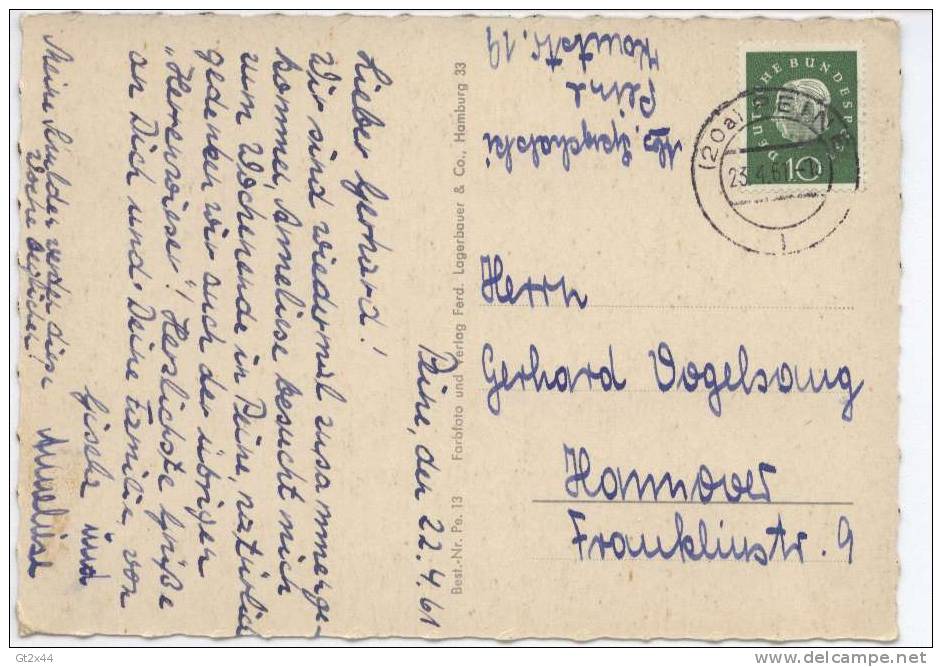 Peine, den 22.4.61
Lieber Gerhard!
Wir sind wiedermal zusammenge-
kommen, Anneliese besucht mich
zum Wochenende in Peine, natürlich
gedenken wir auch der übrigen
"Herrenwiese"! Herzlichste Grüße
an Dich und Deine Familie, von
Gisela und
Anneliese
Meine Kinder
Woche
Best.-Nr. Pe. 13 Farbfoto und Verlag Ferd. Lagerbauer & Co., Hamburg 33
Abs.
Peine
19
DEUTSCHE BUNDESPOST
10
(20a) PEINE
23.4.61
1
Herrn
Gerhard Vogelsang
Hannover
Franklinstr. 9
Gt2x44
www.delcampe.net